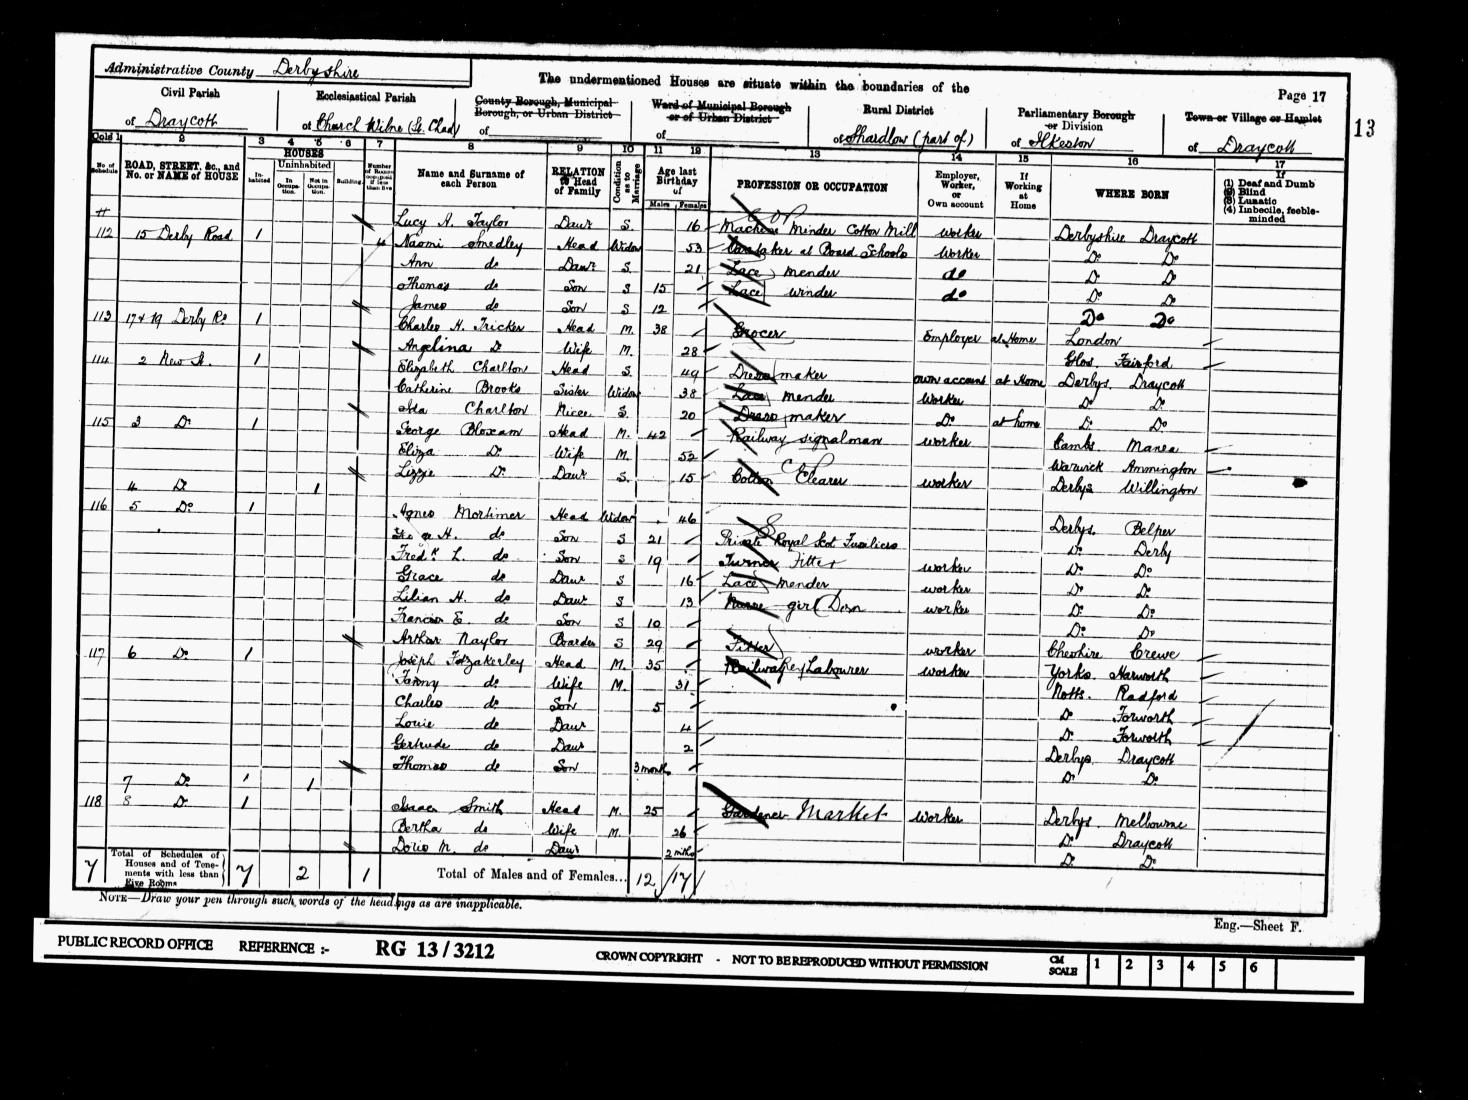 Administrative County Derbyshire
The undermentioned Houses are situate within the boundaries of the
Page 17
13
Civil Parish of Draycott
Ecclesiastical Parish of Church Wilne (St. Chad)
County Borough, Municipal Borough, or Urban District of
Ward of Municipal Borough or of Urban District of
Rural District of Shardlow (part of)
Parliamentary Borough or Division of Ilkeston
Town or Village or Hamlet of Draycott
Cols. 1 2 3 4 5 6 7 8 9 10 11 12 13 14 15 16 17
No. of Schedule
ROAD, STREET, &c., and No. or NAME of HOUSE
HOUSES
Inhabited
Uninhabited
In Occupation.
Not in Occupation.
Building.
Number of Rooms occupied if less than five
Name and Surname of each Person
RELATION to Head of Family
Condition as to Marriage
Age last Birthday of
Males Females
PROFESSION OR OCCUPATION
Employer, Worker, or Own account
If Working at Home
WHERE BORN
If (1) Deaf and Dumb (2) Blind (3) Lunatic (4) Imbecile, feeble-minded
Lucy A. Taylor Daur S. 16 Machine Minder Cotton Mill worker Derbyshire Draycott
112 15 Derby Road 1 4 Naomi Smedley Head Widow 53 Caretaker at Board Schools Worker Do Do
Ann do Daur S. 21 Lace mender do Do Do
Thomas do Son S 15 Lace winder do Do Do
James do Son S 12 Do Do
113 17 & 19 Derby Rd 1 Charles H. Tricker Head M. 38 Grocer Employer at Home London
Angelina Do Wife M. 28 Glos. Fairford
114 2 New St. 1 Elizabeth Charlton Head S. 49 Dress maker own account at Home Derbys. Draycott
Catherine Brooks Sister Widow 38 Lace mender Worker Do Do
Ida Charlton Niece S. 20 Dress maker Do at home Do Do
115 3 Do 1 George Bloxam Head M. 42 Railway signalman worker Cambs. Manea
Eliza Do Wife M. 52 Warwick Ammington
Lizzie Do Daur S. 15 Cotton Clearer worker Derbys Willington
4 Do 1
116 5 Do 1 Agnes Mortimer Head Widow 46 Derbys. Belper
George H. do Son S 21 Private Royal Scot Fusiliers Do Derby
Fredk L. do Son S 19 Turner Fitter worker Do Do
Grace do Daur S 16 Lace mender worker Do Do
Lilian H. do Daur S 13 Nurse girl Dom worker Do Do
Francis E. do Son S 10 Do Do
Arthur Naylor Boarder S 29 Fitter worker Cheshire Crewe
117 6 Do 1 Joseph Fazakerley Head M. 35 Railway Labourer worker Yorks. Harworth
Fanny do Wife M. 31 Notts. Radford
Charles do Son 5 Do Torworth
Louie do Daur 4 Do Torworth
Gertrude do Daur 2 Derbys. Draycott
Thomas do Son 3 month Do Do
7 Do 1
118 8 Do 1 Isaac Smith Head M. 25 Gardener Market Worker Derbys. Melbourne
Bertha do Wife M. 26 Do Draycott
Doris M. do Daur 2 mths Do Do
7 Total of Schedules of Houses and of Tenements with less than Five Rooms 7 2 1 Total of Males and of Females... 12 17
NOTE—Draw your pen through such words of the headings as are inapplicable.
Eng.—Sheet F.
PUBLIC RECORD OFFICE REFERENCE :- RG 13 / 3212 CROWN COPYRIGHT - NOT TO BE REPRODUCED WITHOUT PERMISSION CM SCALE 1 2 3 4 5 6